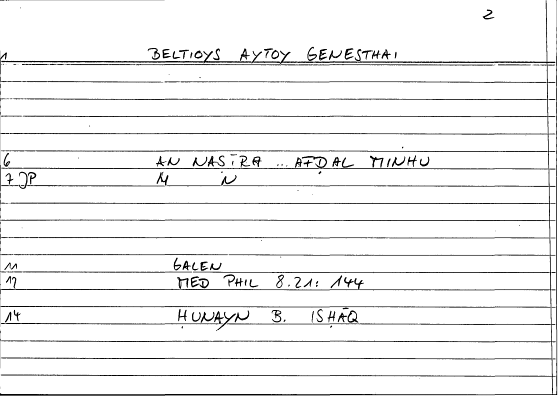 2
1 BELTIOYS AYTOY GENESTHAI
6 AN NAṢĪRA ... AFḌAL MINHU
7 JP M N
11 GALEN
12 MED PHIL 8.21: 144
14 ḤUNAYN B. ISḤĀQ